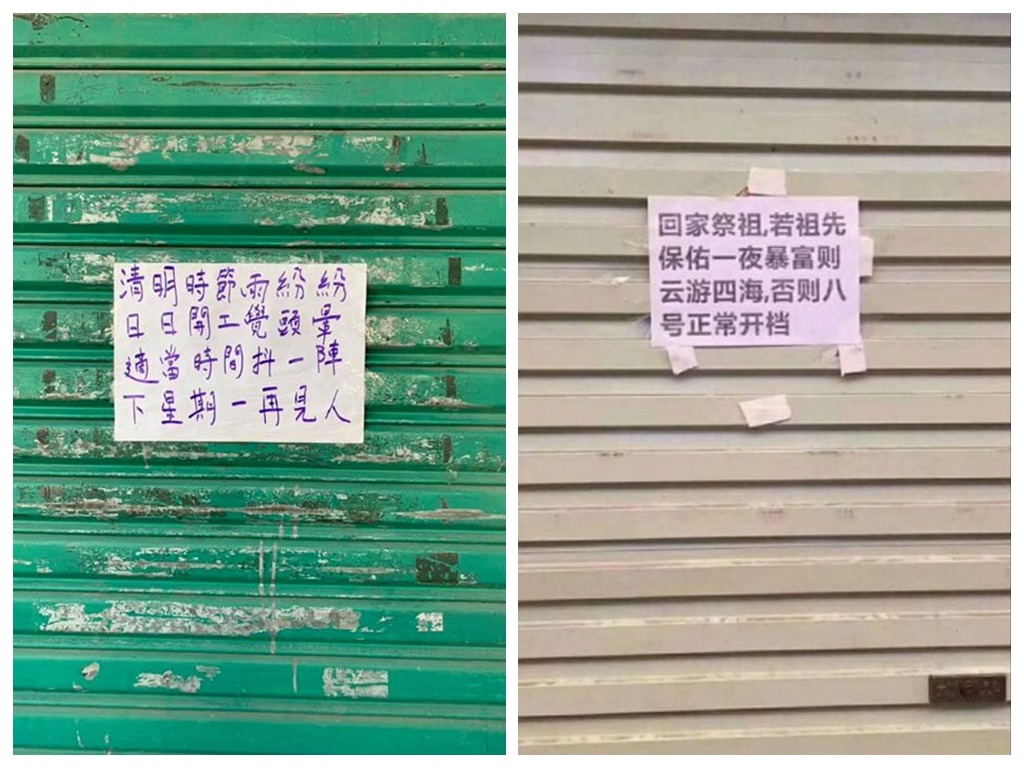 清明時節雨紛紛
日日開工覺頭暈
適當時間抖一陣
下星期一再見人
回家祭祖,若祖先
保佑一夜暴富则
云游四海,否则八
号正常开档